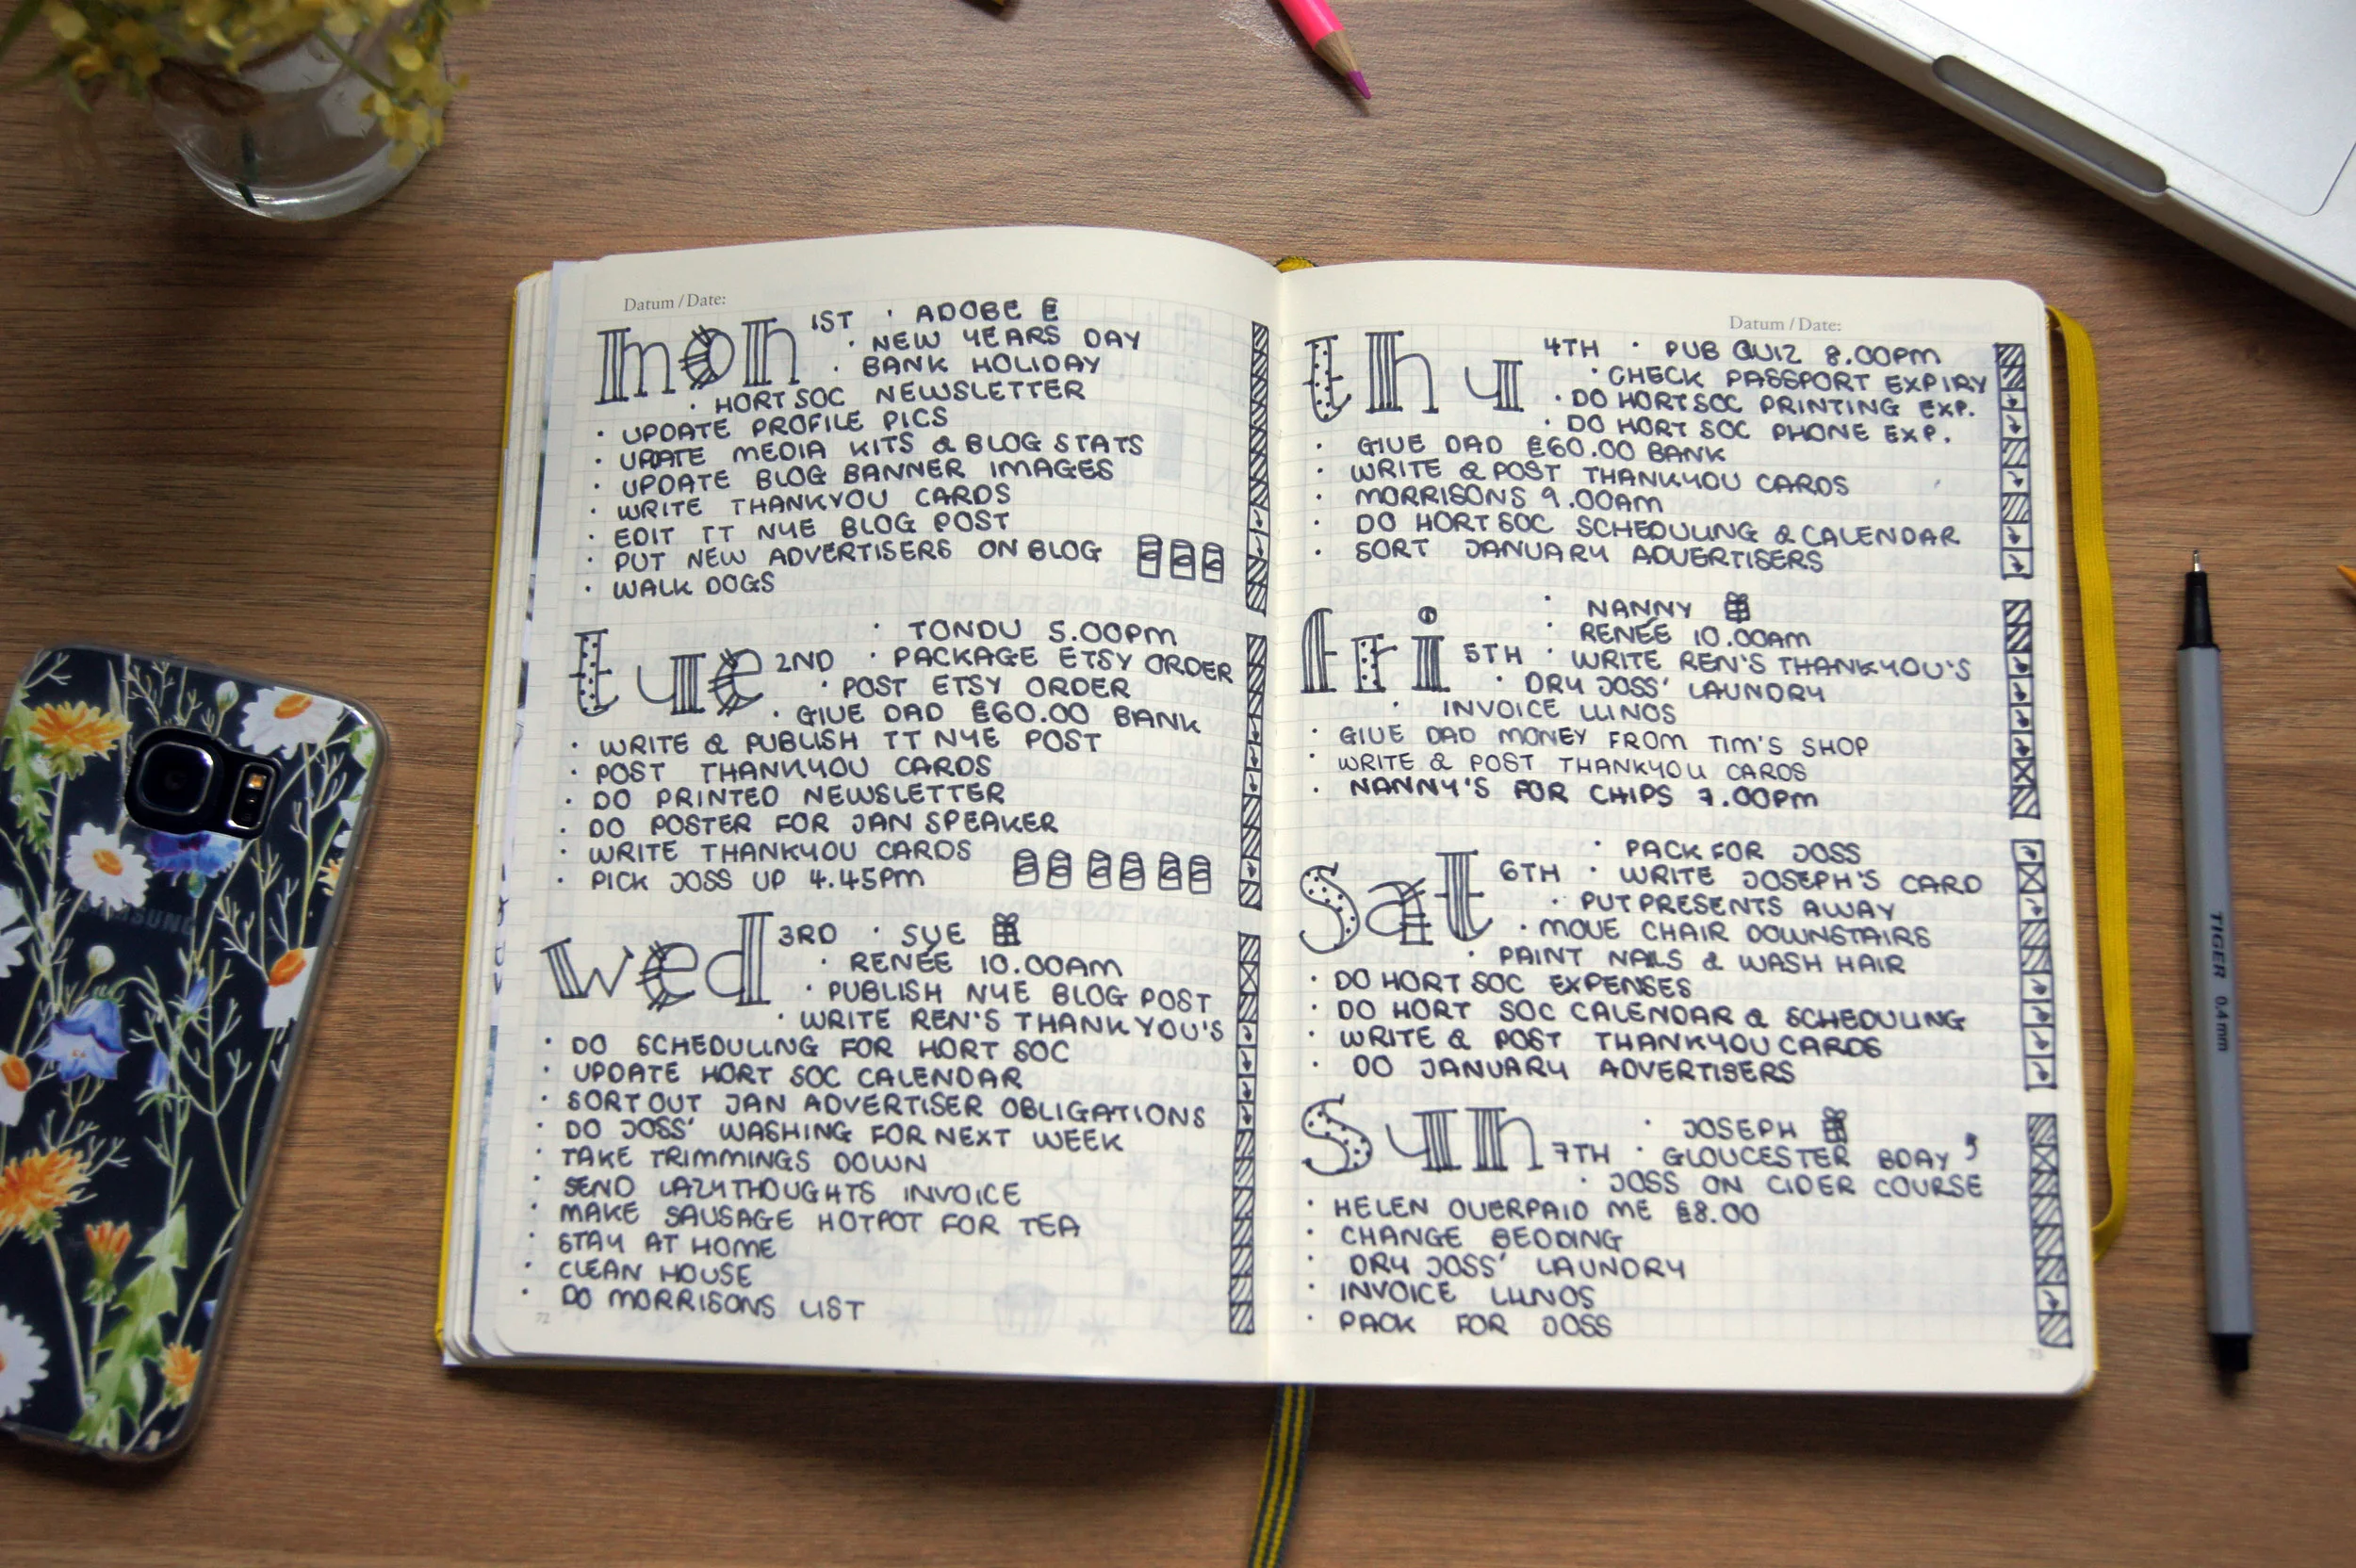 Datum / Date:
mon 1ST · ADOBE £
· NEW YEARS DAY
· BANK HOLIDAY
· HORT SOC NEWSLETTER
· UPDATE PROFILE PICS
· UPDATE MEDIA KITS & BLOG STATS
· UPDATE BLOG BANNER IMAGES
· WRITE THANKYOU CARDS
· EDIT TT NYE BLOG POST
· PUT NEW ADVERTISERS ON BLOG
· WALK DOGS
· TONDU 5.00PM
tue 2ND · PACKAGE ETSY ORDER
· POST ETSY ORDER
· GIVE DAD £60.00 BANK
· WRITE & PUBLISH TT NYE POST
· POST THANKYOU CARDS
· DO PRINTED NEWSLETTER
· DO POSTER FOR JAN SPEAKER
· WRITE THANKYOU CARDS
· PICK JOSS UP 4.45PM
wed 3RD · SUE
· RENEE 10.00AM
· PUBLISH NYE BLOG POST
· WRITE REN'S THANKYOU'S
· DO SCHEDULING FOR HORT SOC
· UPDATE HORT SOC CALENDAR
· SORT OUT JAN ADVERTISER OBLIGATIONS
· DO JOSS' WASHING FOR NEXT WEEK
· TAKE TRIMMINGS DOWN
· SEND LAZYTHOUGHTS INVOICE
· MAKE SAUSAGE HOTPOT FOR TEA
· STAY AT HOME
· CLEAN HOUSE
· DO MORRISONS LIST
72
Datum / Date:
thu 4TH · PUB QUIZ 8.00PM
· CHECK PASSPORT EXPIRY
· DO HORTSOC PRINTING EXP.
· DO HORT SOC PHONE EXP.
· GIVE DAD £60.00 BANK
· WRITE & POST THANKYOU CARDS
· MORRISONS 9.00AM
· DO HORT SOC SCHEDULING & CALENDAR
· SORT JANUARY ADVERTISERS
· NANNY
· RENEE 10.00AM
fri 5TH · WRITE REN'S THANKYOU'S
· DRY JOSS' LAUNDRY
· INVOICE LLINOS
· GIVE DAD MONEY FROM TIM'S SHOP
· WRITE & POST THANKYOU CARDS
· NANNY'S FOR CHIPS 7.00PM
· PACK FOR JOSS
sat 6TH · WRITE JOSEPH'S CARD
· PUT PRESENTS AWAY
· MOVE CHAIR DOWNSTAIRS
· PAINT NAILS & WASH HAIR
· DO HORT SOC EXPENSES
· DO HORT SOC CALENDAR & SCHEDULING
· WRITE & POST THANKYOU CARDS
· DO JANUARY ADVERTISERS
· JOSEPH
sun 7TH · GLOUCESTER BDAY
· JOSS ON CIDER COURSE
· HELEN OVERPAID ME £8.00
· CHANGE BEDDING
· DRY JOSS' LAUNDRY
· INVOICE LLINOS
· PACK FOR JOSS
73
SAMSUNG
TIGER 0,4 mm